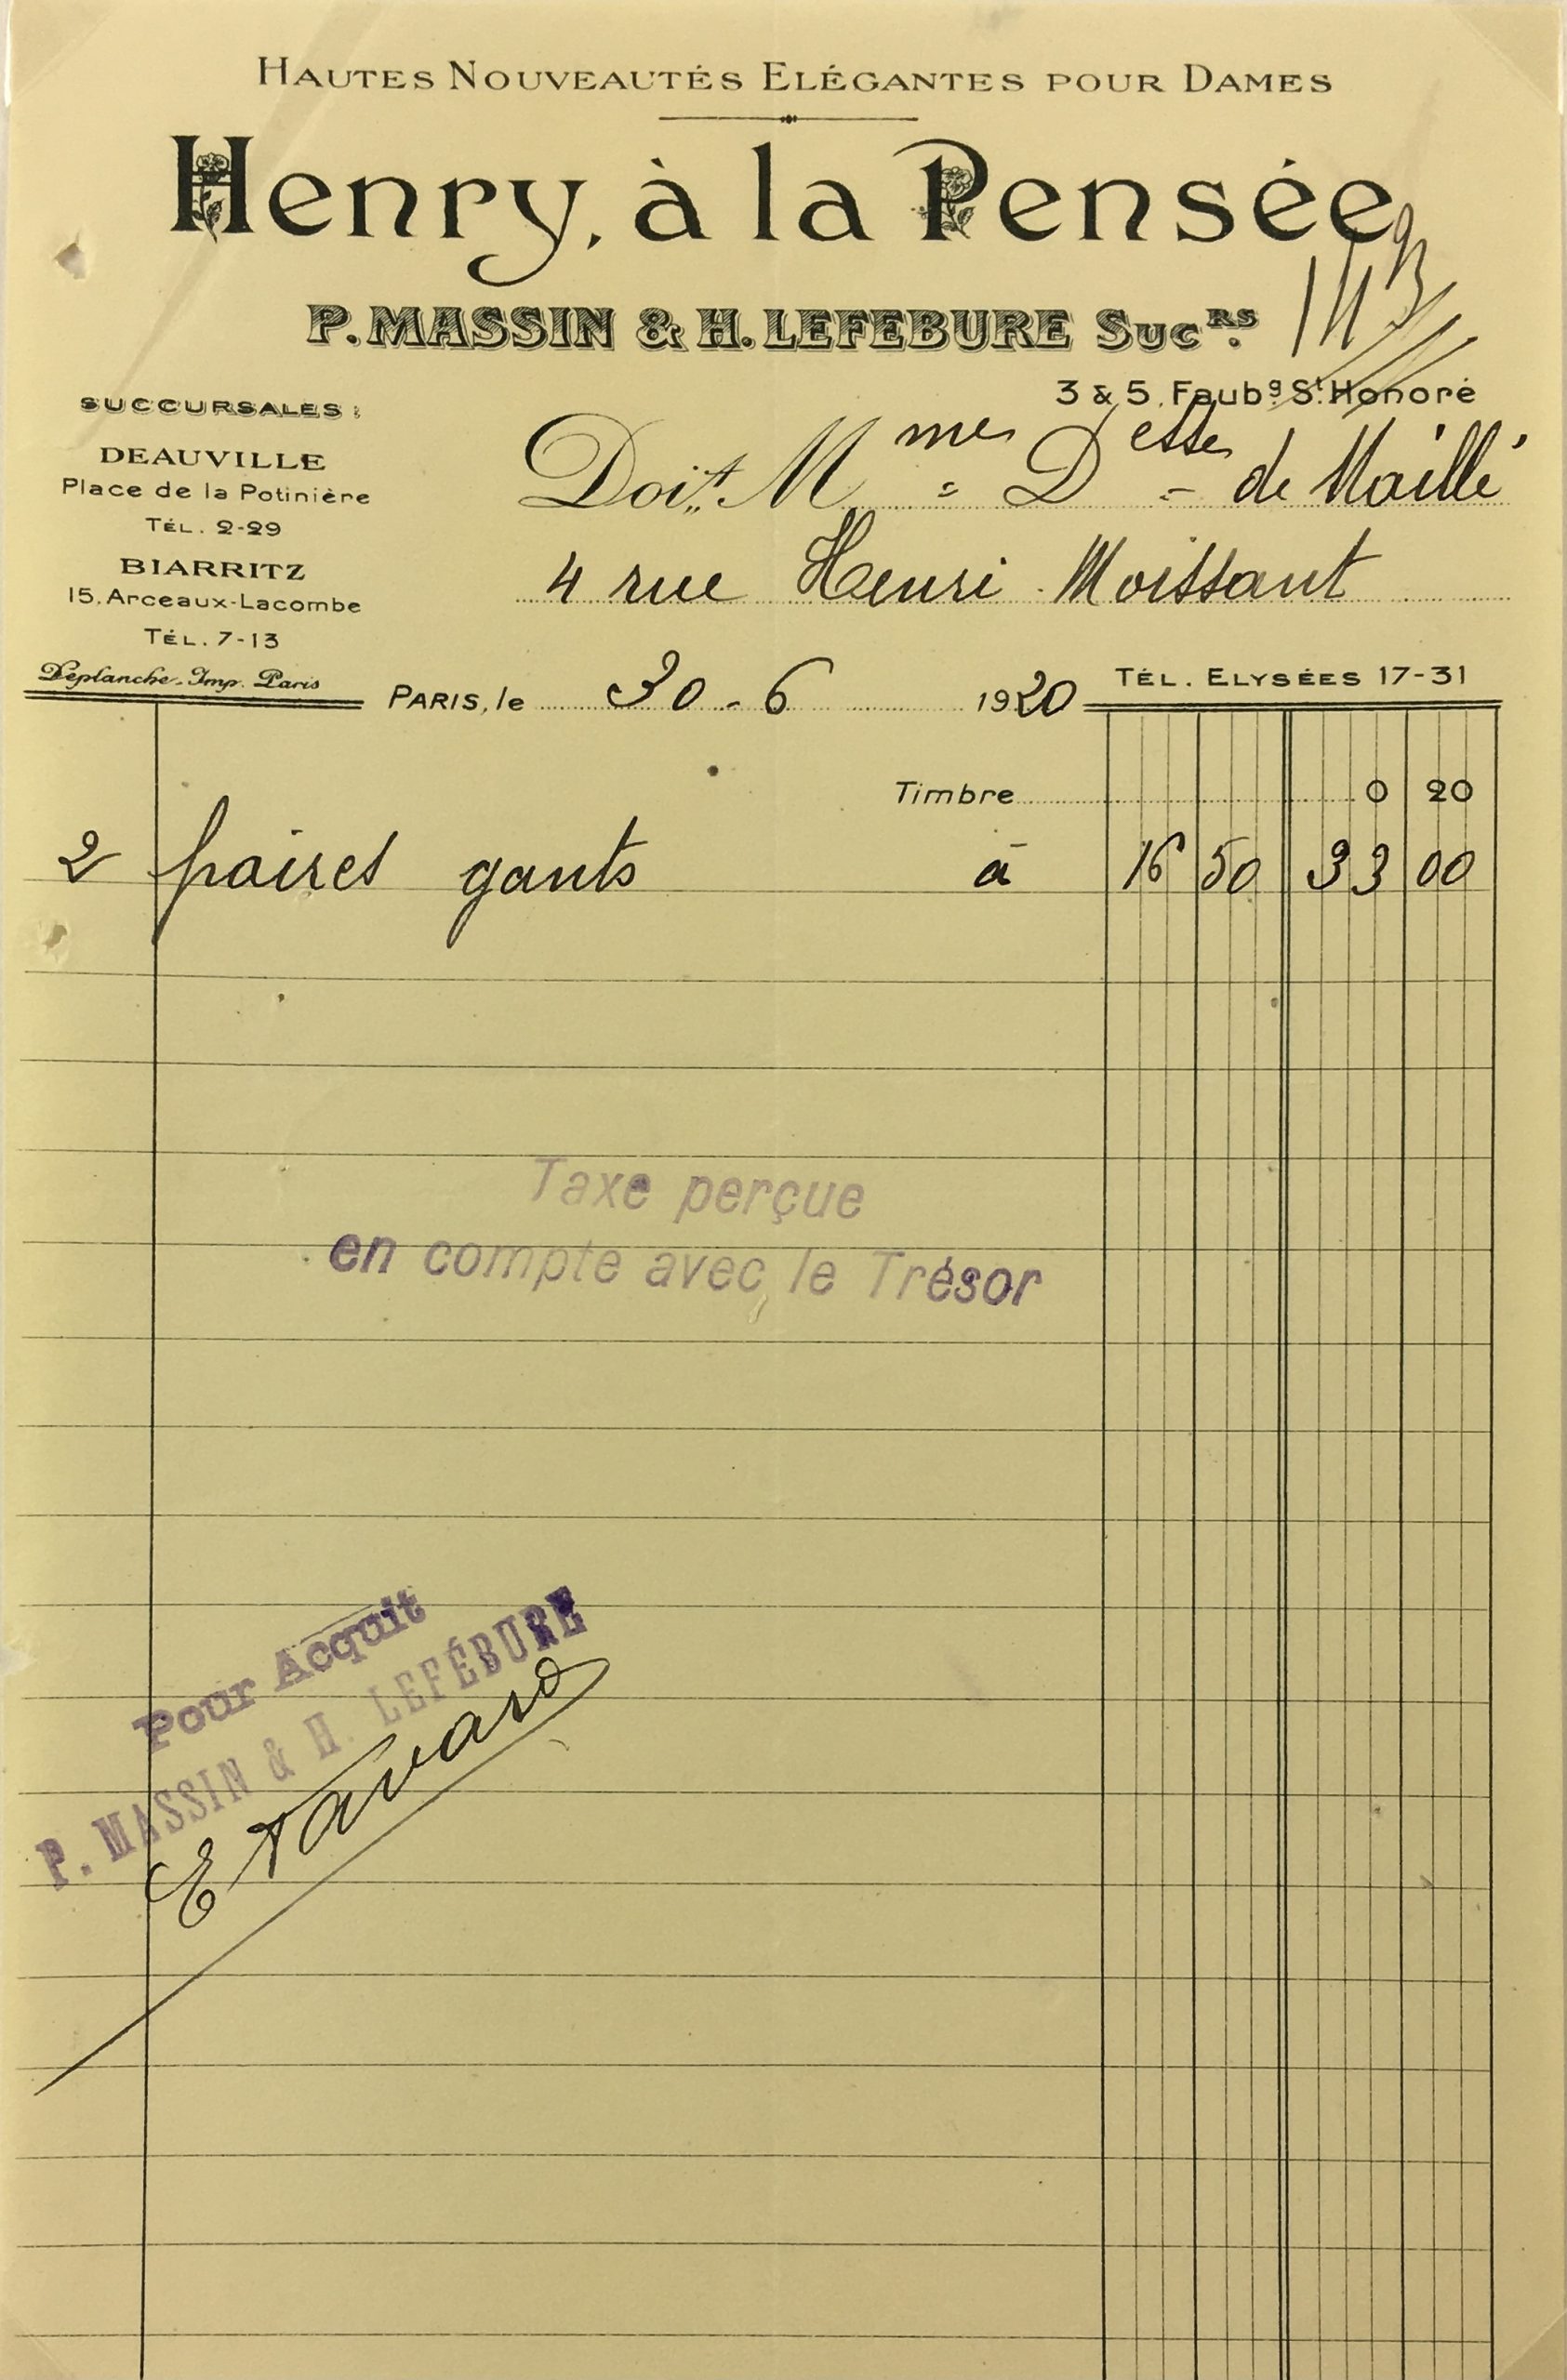 Hautes Nouveautés Elégantes pour Dames
Henry, à la Pensée
P. MASSIN & H. LEFEBURE Suc.RS
143
3 & 5, Faubg. St. Honoré
SUCCURSALES :
DEAUVILLE
Place de la Potinière
TÉL. 2-29
BIARRITZ
15, Arceaux-Lacombe
TÉL. 7-13
Déplanche-Imp. Paris
Doit M me D esse de Maillé
4 rue Henri Moissant
PARIS, le 30-6 1920
TÉL. ELYSÉES 17-31
Timbre 0 20
2 paires gants à 16 50 33 00
Taxe perçue
en compte avec le Trésor
Pour Acquit
P. MASSIN & H. LEFÉBURE